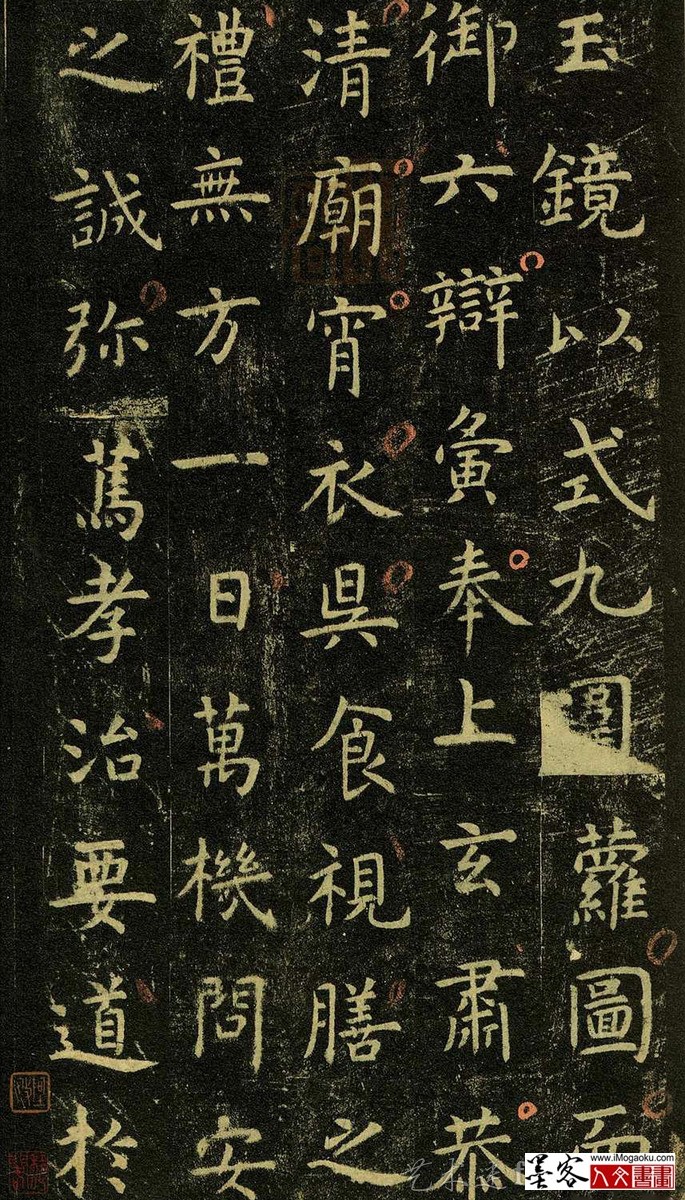 玉鏡以式九圍蘿圖而
御六辯寅奉上玄肅恭
清廟宵衣昃食視膳之
禮無方一日萬機問安
之誠弥篤孝治要道於
墨客
www.iMogaoku.com
人文書畫